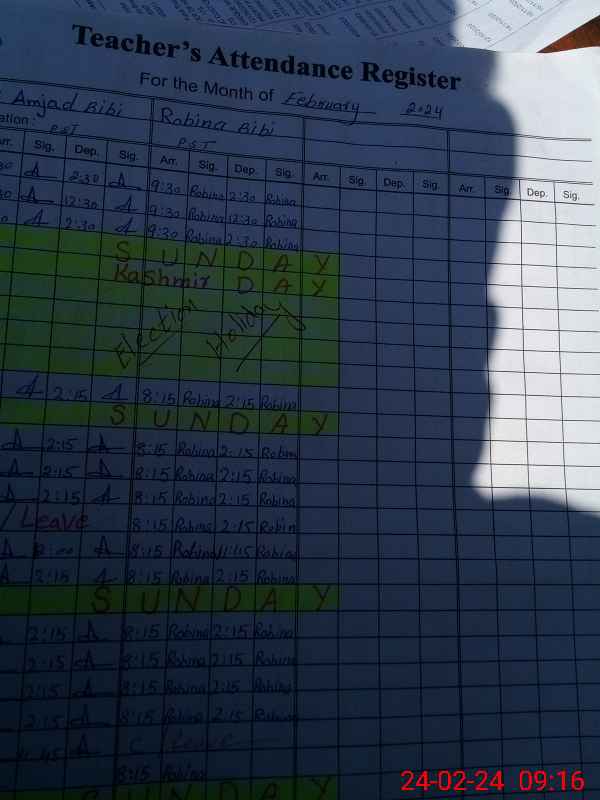 Teacher's Attendance Register
For the Month of February 2024
Amjad Bibi Robina Bibi
ation: PST PST
Arr. Sig. Dep. Sig. Arr. Sig. Dep. Sig. Arr. Sig. Dep. Sig. Arr. Sig. Dep. Sig.
30 A 2:30 A 9:30 Robina 2:30 Robina
30 A 12:30 A 9:30 Robina 12:30 Robina
0 A 2:30 A 9:30 Robina 2:30 Robina
SUNDAY
Kashmir DAY
Election Holiday
A 2:15 A 8:15 Robina 2:15 Robina
SUNDAY
A 2:15 A 8:15 Robina 2:15 Robin
A 2:15 A 8:15 Robina 2:15 Robina
A 2:15 A 8:15 Robina 2:15 Robina
/ Leave 8:15 Robina 2:15 Robin
A 2:00 A 8:15 Robina 11:15 Robina
A 2:15 A 8:15 Robina 2:15 Robina
SUNDAY
2:15 A 8:15 Robina 2:15 Robina
2:15 A 8:15 Robina 2:15 Robina
2:15 A 8:15 Robina 2:15 Robina
2:15 A 8:15 Robina 2:15 Robina
A C / Leave
8:15 Robina
SUNDAY
24-02-24 09:16